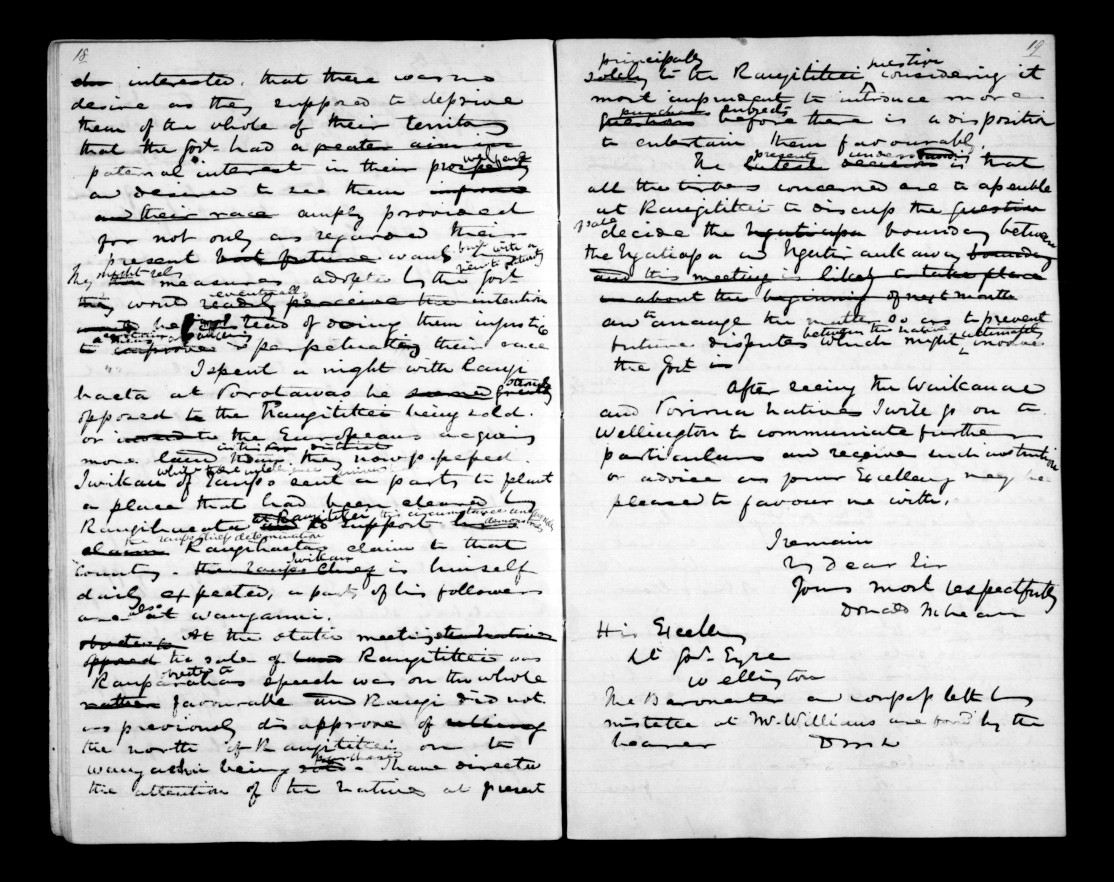 18
interested. that there was no
desire as they supposed to deprive
them of the whole of their territory
that the Govt. had a greater aim in
paternal interest in their prosperity welfare
and desired to see them improve
and their race amply provided
for not only as regarded their
present but future wants but with a view to
They might rely measures adopted by the Govt
they would readily eventually perceive the intention
instead of doing them injustice
to improve & perpetuating their race
I spent a night with Rangi
haeata at Porotawao he seemed greatly strongly
opposed to the Rangitikei being sold.
or to the Europeans acquiring
more land within district than they now possessed.
Iwikau of Taupo sent a party to plant
a place that had been cleared by
Rangihaeata at Rangitikei this circumstance and
the Taupo Chiefs determination to support his
claim Rangihaeatas claim to that
country. the Taupo Chief Iwikau is himself
daily expected, a party of his followers
are also at Wanganui.
At the Otaki meeting the natives
opposed the sale of land Rangitikei was
objected to
Rauparahas speech was on the whole
rather favourable and Rangi did not
as previously disapprove of selling
the north of Rangitikei on to
Wangaehu being sold purchased. I have directed
the attention of the natives at present
19
principally
solely to the Rangitikei question considering it
most imprudent to introduce more
questions purchase subjects before there is a disposition
to entertain them favourably.
The latest present decision understanding is that
all the tribes concerned are to assemble
at Rangitikei to discuss the question
decide the Ngatiapa boundary between
the Ngatiapa and Ngatiraukawas boundary
and this meeting is likely to take place
in about the beginning of next month
and to arrange the matter so as to prevent
future disputes between the natives which might ultimately involve
the Govt in
After seeing the Waikanae
and Porirua natives I will go on to
Wellington to communicate further
particulars and receive such instruction
or advice as your Excellency may be
pleased to favour me with.
I remain
My Dear Sir
Yours most respectfully
Donald McLean
His Excellency
Lt Govr. Eyre
Wellington
The Barometer and compass left by
mistake at Mr Williams are forwd by the
bearer